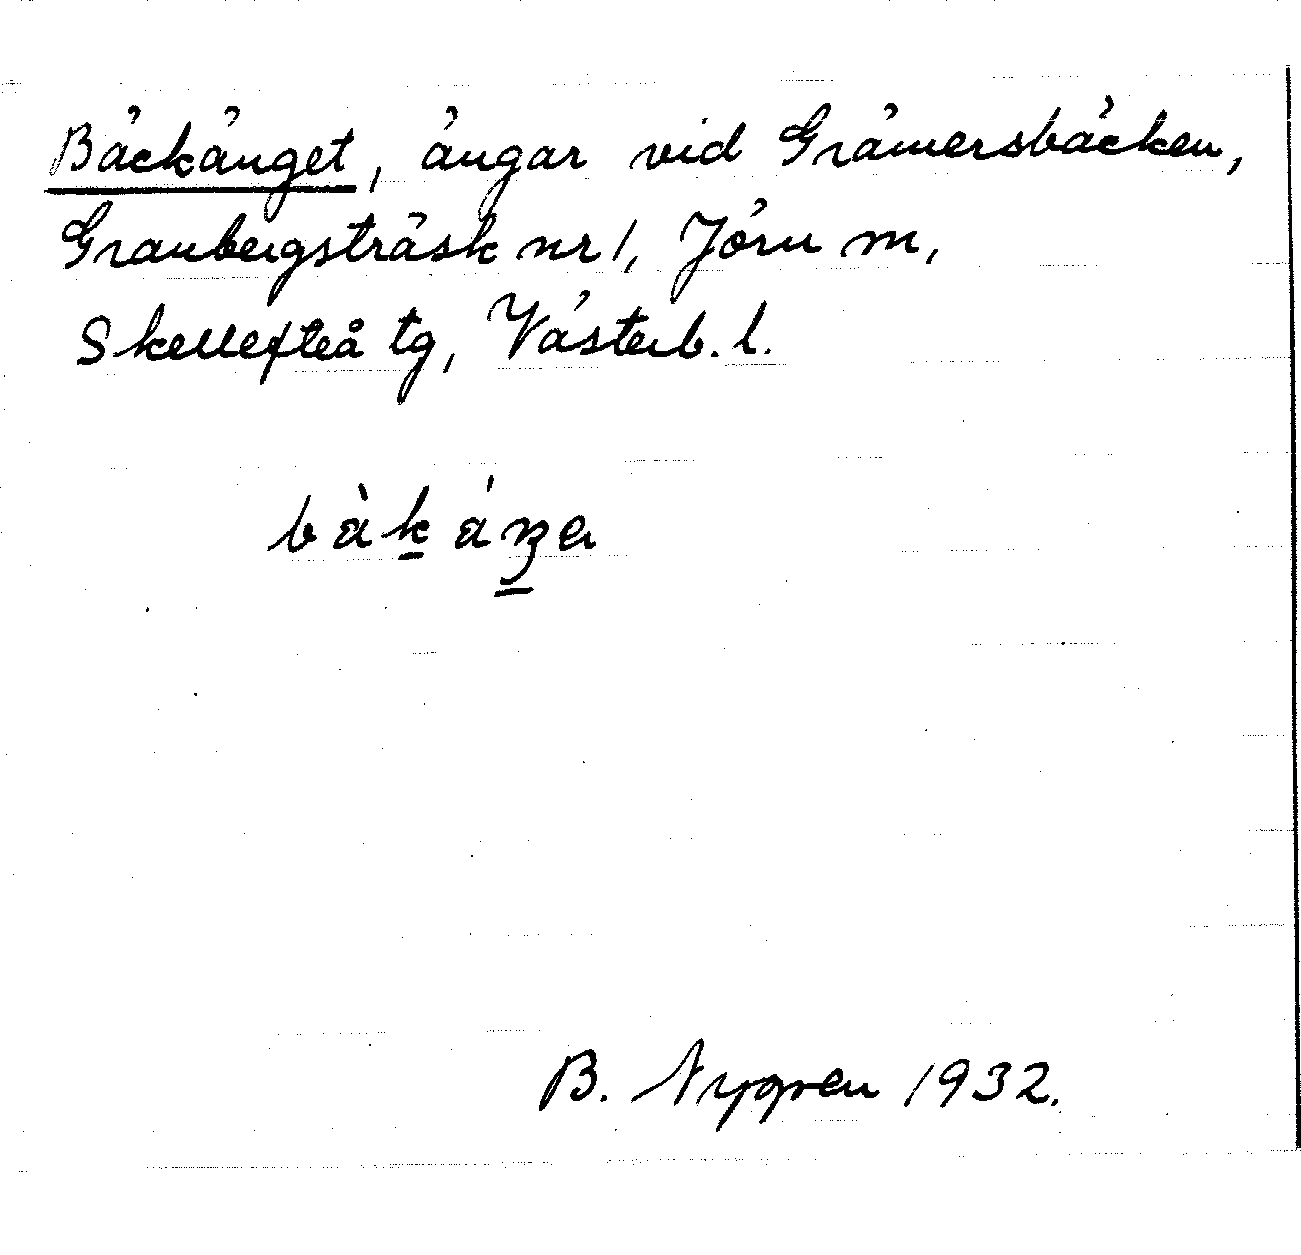 Bäckänget, ängar vid Grämersbäcken,
Granbergsträsk nr 1, Jörn m,
Skellefteå tg, Västerb. l.
bàkáŋa
B. Nygren 1932.